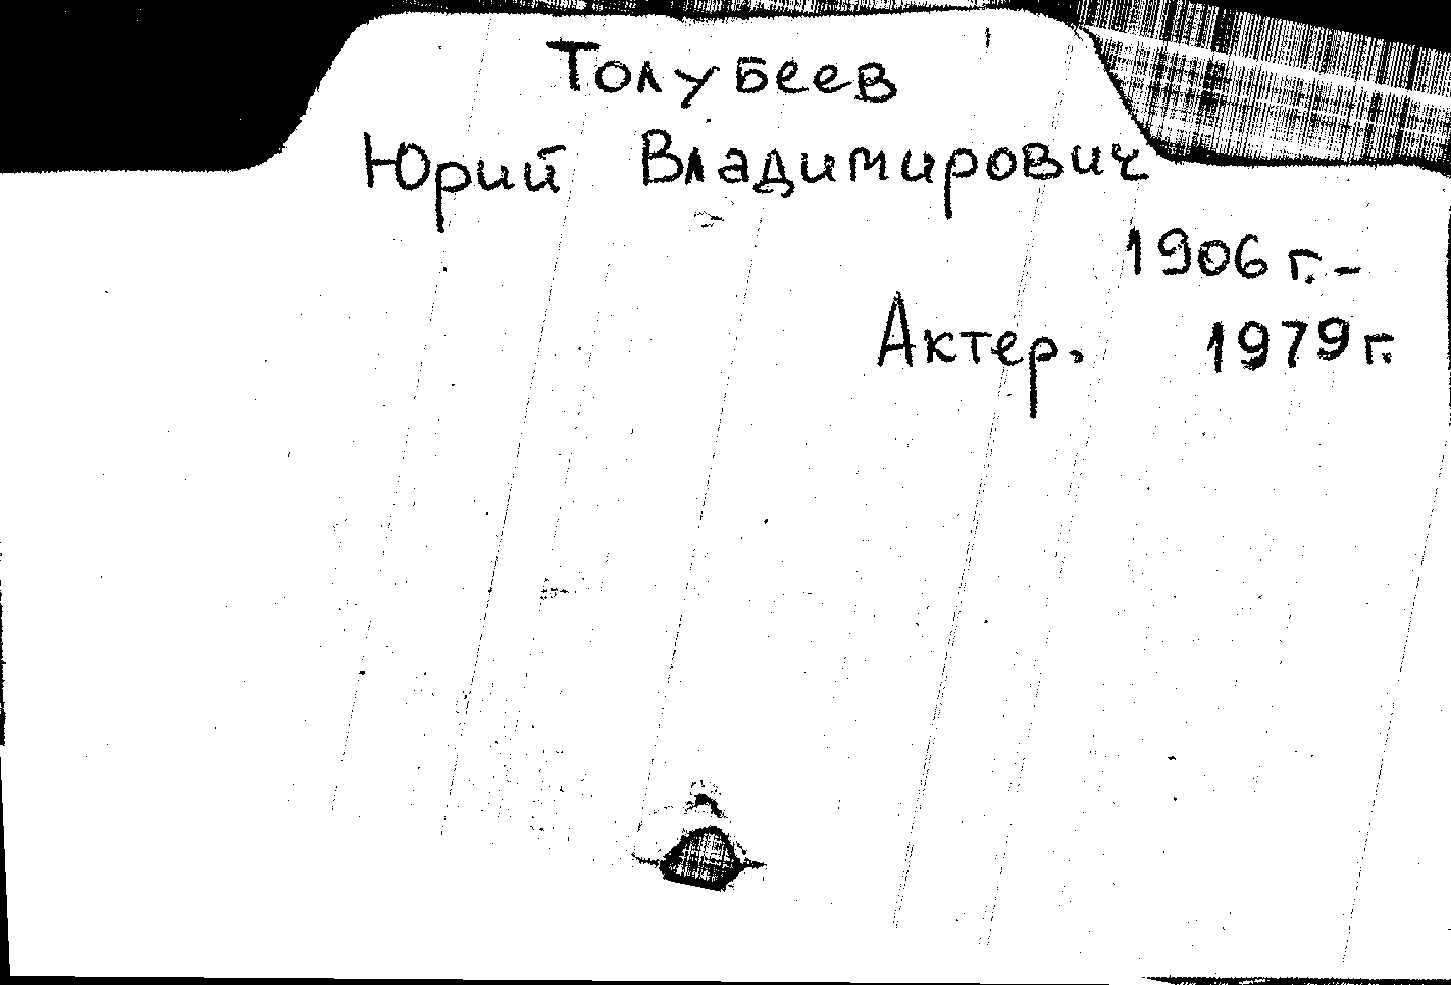 Толубеев
Юрий Владимирович
1906 г. -
Актер. 1979 г.